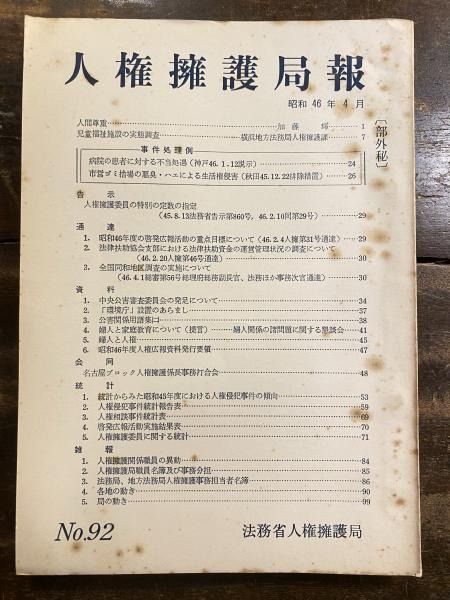 人権擁護局報
昭和 46 年 4 月
〔部外秘〕
人間尊重……加藤 輝……1
児童福祉施設の実態調査……横浜地方法務局人権擁護課……7
事件処理例
病院の患者に対する不当処遇(神戸46.1.12説示)……24
市営ゴミ捨場の悪臭・ハエによる生活権侵害(秋田45.12.22排除措置)……26
告示
人権擁護委員の特別の定数の指定
(45.8.13法務省告示第860号, 46.2.10同第29号)……29
通達
1. 昭和46年度の啓発広報活動の重点目標について(46.2.4人擁第31号通達)……29
2. 法律扶助協会支部における法律扶助資金の運営管理状況の調査について
(46.2.20人擁第46号通達)……30
3. 全国同和地区調査の実施について
(46.4.1総審第56号総理府総務副長官、法務ほか事務次官通達)……30
資料
1. 中央公害審査委員会の発足について……34
2. 「環境庁」設置のあらまし……37
3. 公害関係用語集口……38
4. 婦人と家庭教育について(提言)……婦人関係の諸問題に関する懇談会……41
5. 婦人と人権……45
6. 昭和46年度人権広報資料発行要領……47
会同
名古屋ブロック人権擁護係長事務打合会……48
統計
1. 統計からみた昭和45年度における人権侵犯事件の傾向……53
2. 人権侵犯事件統計報告表……59
3. 人権相談事件統計表……69
4. 啓発広報活動実施結果表……70
5. 人権擁護委員に関する統計……71
雑報
1. 人権擁護関係職員の異動……84
2. 人権擁護局職員名簿及び事務分担……85
3. 法務局、地方法務局人権擁護事務担当者名簿……86
4. 各地の動き……90
5. 局の動き……99
No.92
法務省人権擁護局